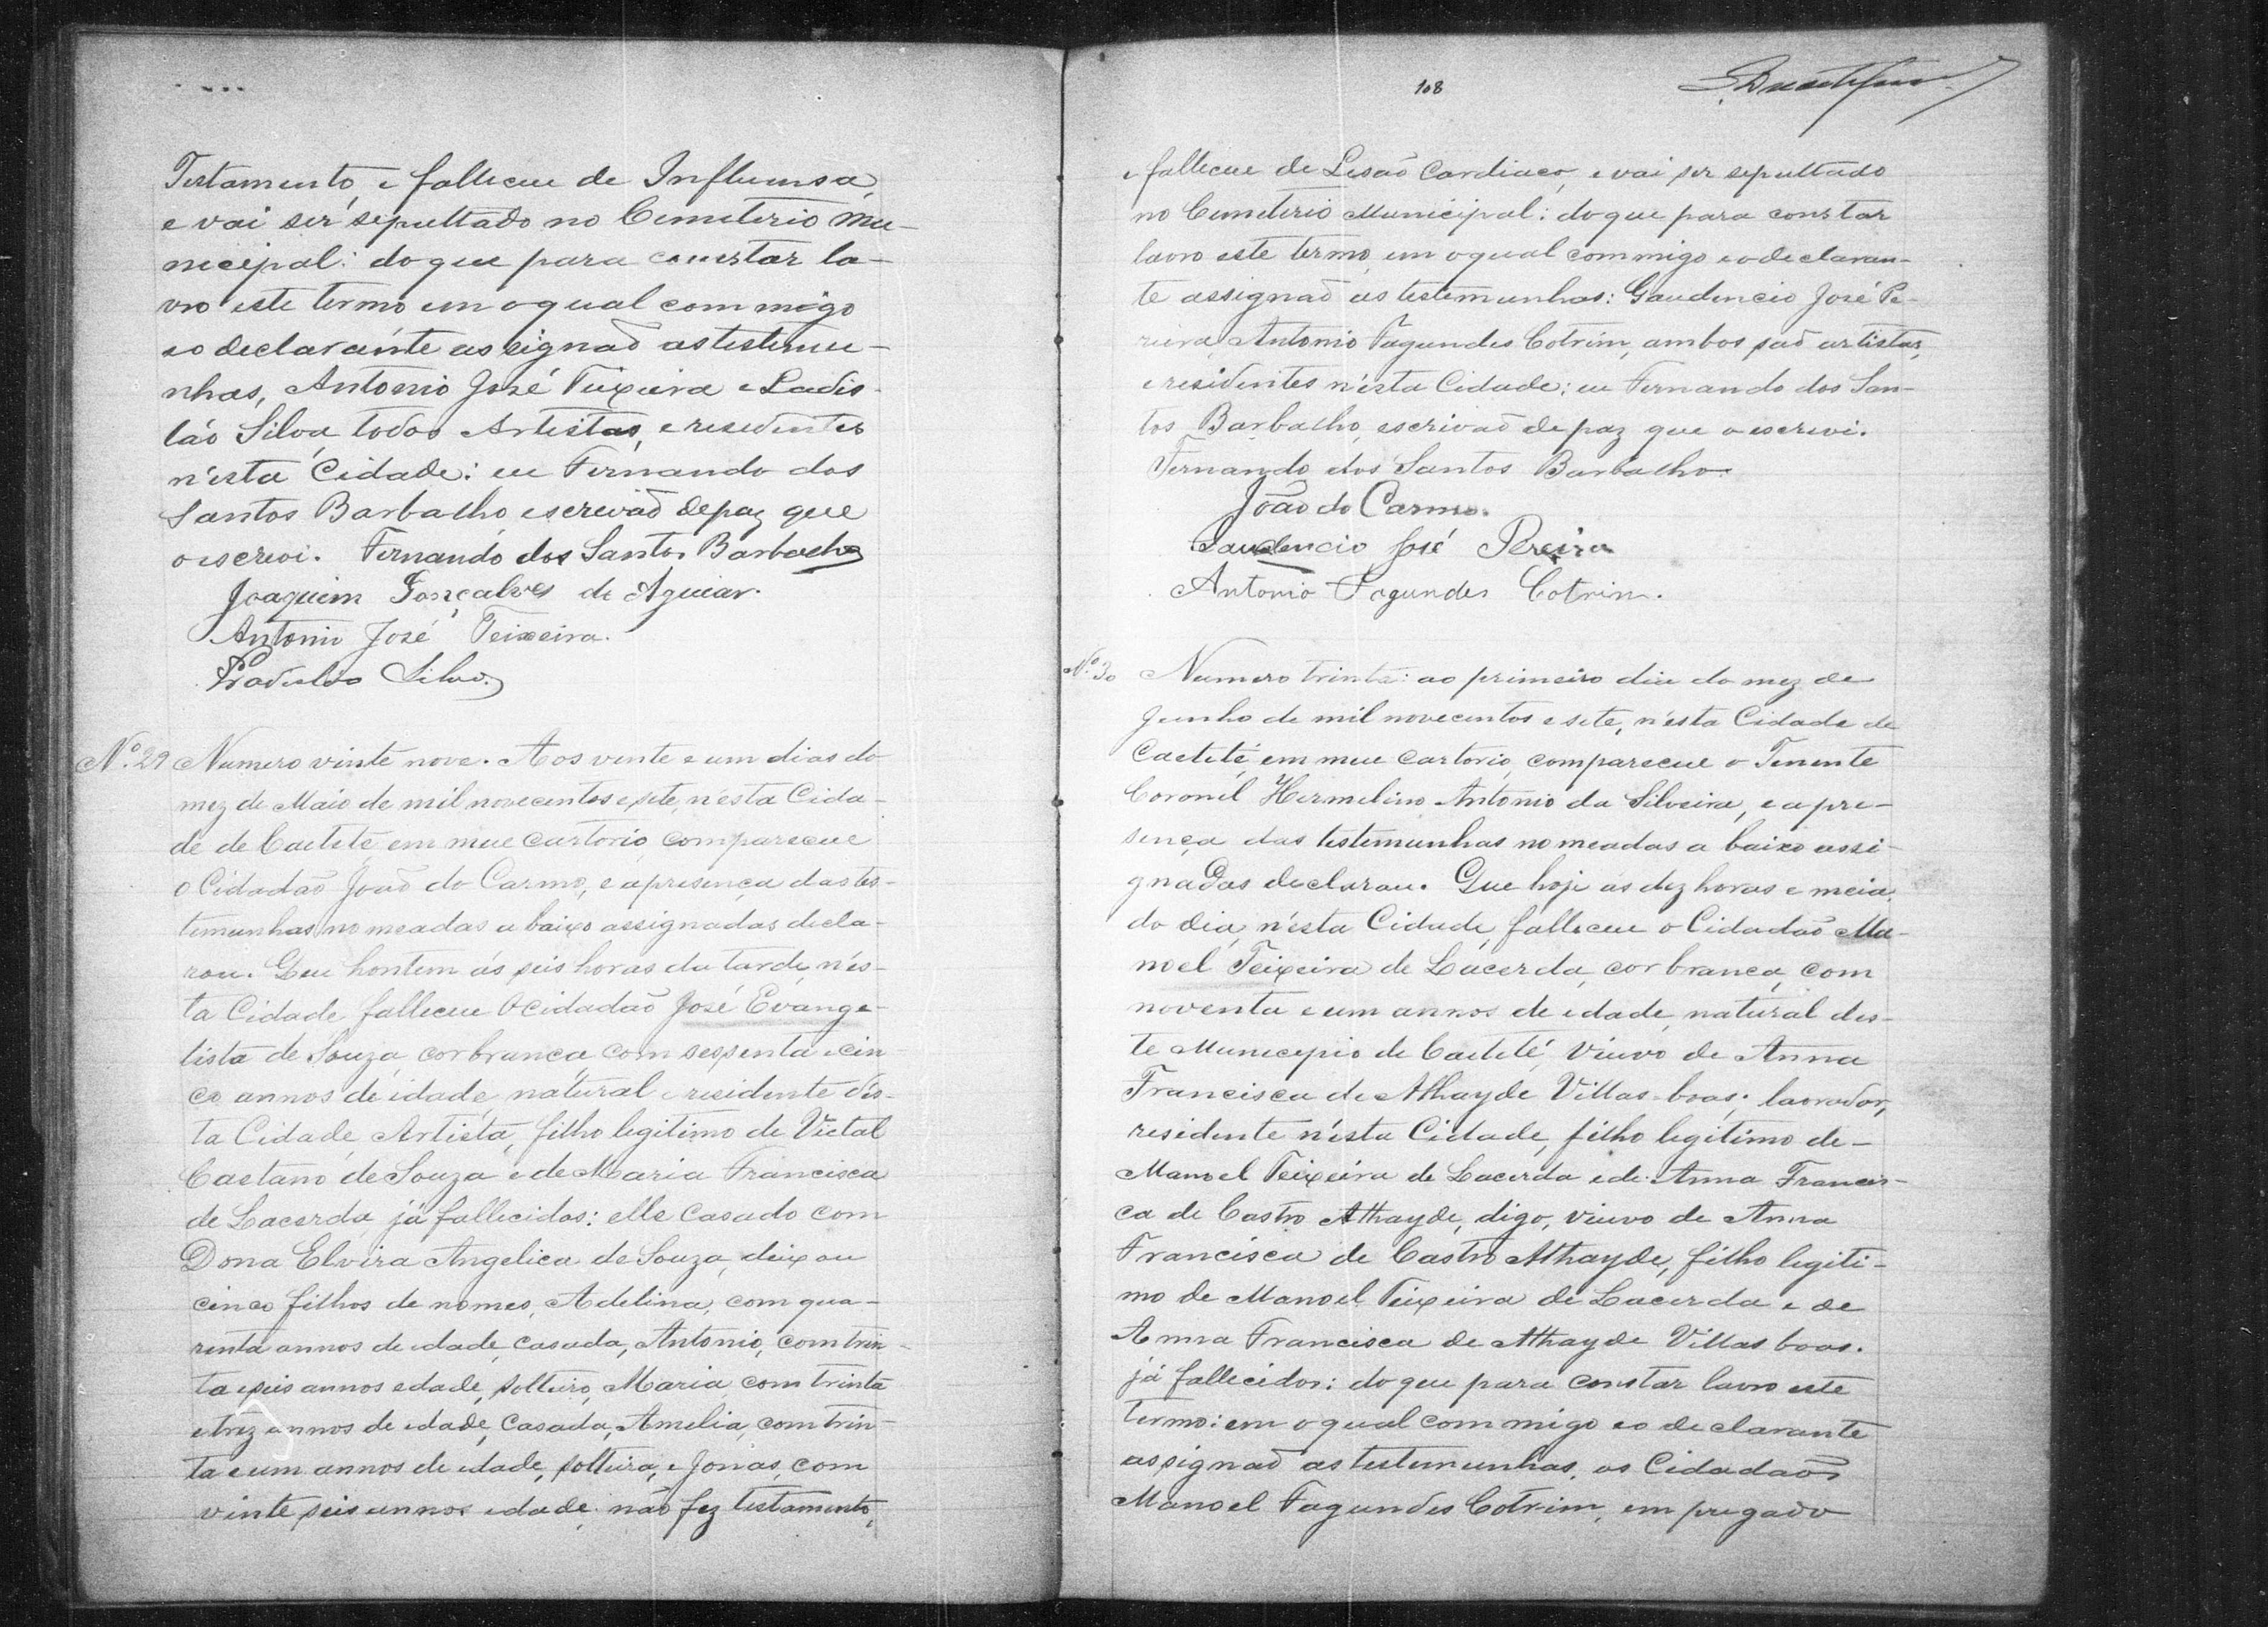 Testamento, e falleceu de Influensa,
e vai ser sepultado no Cemeterio Mu-
necipal: do que para constar la-
vro este termo em o qual commigo
eo declarante assignaõ as testemu-
nhas, Antonio José Teixeira e Ladis-
láo Silva, todos Artistas, e residentes
n'esta Cidade: eu Fernando dos
Santos Barbalho, escrivaõ de paz que
o escrevi. Fernando dos Santos Barbalho
Joaquim Gonçalves de Aguiar.
Antonio José Teixeira.
Ladislão Silva.
Nº. 29 Numero vinte nove. Aos vinte e um dias do
mez de Maio de mil novecentos e sete, n'esta Cida-
de de Caeteté em meu cartorio, compareceu
o Cidadaõ Joaõ do Carmo, e a presença das tes-
temunhas nomeadas a baixo assignadas decla-
rou. Que hontem ás seis horas da tarde, n'es-
ta Cidade falleceu O cidadaõ José Evange-
lista de Souza, cor branca, com sessenta e cin
co annos de idade, natural e residente d'es-
ta Cidade, Artista, filho legitimo de Victal
Caetano de Souza e de Maria Francisca
de Lacerda, já fallecidos: elle casado com
Dona Elvira Angelica de Souza, deixou
cinco filhos de nomes, Adelina, com qua-
renta annos de edade, casada, Antonio, com trin-
ta e seis annos edade, solteiro, Maria, com trinta
e trez annos de edade, casada, Amelia, com trin-
ta e um annos de edade, solteira, e Jonas, com
vinte seis annos edade. não fez testamento,
108
e falleceu de Lesaõ Cardiaca, e vai ser sepultado
no Cemeterio Municipal: do que para constar
lavro este termo, em o qual commigo e o declaran-
te assignaõ as testemunhas: Gaudencio José Pe-
reira, Antonio Fagundes Cotrim, ambos saõ artistas,
e residentes n'esta Cidade; eu Fernando dos San-
tos Barbalho, escrivaõ de paz que o escrevi.
Fernando dos Santos Barbalho
João do Carmo.
Gaudencio José Pereira
Antonio Fagundes Cotrim.
Nº. 30 Numero trinta: ao primeiro dia do mez de
Junho de mil novecentos e sete, n'esta Cidade de
Caeteté, em meu cartorio, compareceu o Tenente
Coronel Hermelino Antonio da Silveira, e a pre-
sença das testemunhas nomeadas a baixo assi-
gnadas declarou. Que hoje ás dez horas e meia
do dia, n'esta Cidade, falleceu o Cidadaõ Ma-
noel Teixeira de Lacerda, cor branca, com
noventa e um annos de edade, natural des-
te Municepio de Caeteté, Viuvo de Anna
Francisca de Athayde Villas-boas; lavrador,
residente n'esta Cidade, filho legitimo de-
Manoel Teixeira de Lacerda e de Anna Francis-
ca de Castro Athayde, digo, viuvo de Anna
Francisca de Castro Athayde, filho legiti-
mo de Manoel Teixeira de Lacerda e de
Anna Francisca de Athayde Villas boas.
já fallecidos: do que para constar lavro este
termo: em o qual commigo eo declarante
assignaõ as testemunhas, os Cidadaõs
Manoel Fagundes Cotrim, empregado